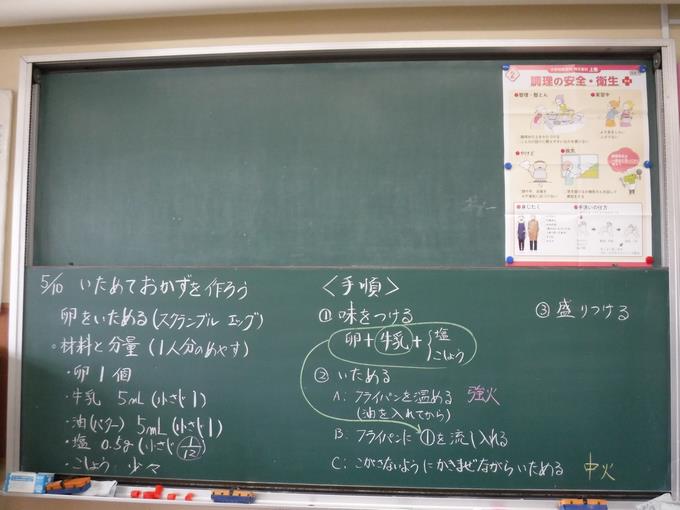 5/10 いためておかずを作ろう
卵をいためる(スクランブル エッグ)
◦材料と分量(1人分のめやす)
・卵 1個
・牛乳 5mL(小さじ1)
・油(バター) 5mL(小さじ1)
・塩 0.5g(小さじ 1/12)
・こしょう 少々
<手順>
① 味をつける
卵+牛乳+{塩
こしょう
② いためる
A: フライパンを温める 強火
(油を入れてから)
B: フライパンに①を流し入れる
C: こがさないようにかきまぜながらいためる 中火
③ 盛りつける
2
調理の安全・衛生
●整理・整とん
●実習中
●やけど
●換気
●身じたく
●手洗いの仕方